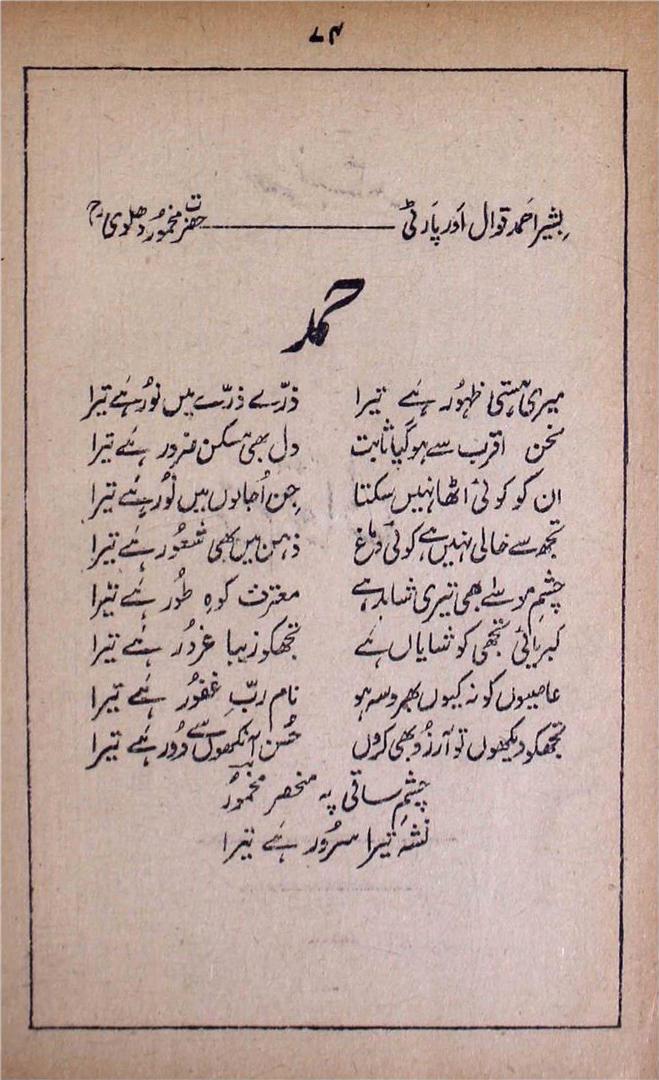 ۷۴
بشیر احمد قوال اور پارٹی ــــــــــ حضرت مخمور دھلوی رح
حمد
میری ہستی ظہور ہے تیرا ذرّے ذرّے میں نور ہے تیرا
نحن اقرب سے ہوگیا ثابت دل بھی مسکن ضرور ہے تیرا
ان کو کوئی اٹھا نہیں سکتا جن اُجالوں میں نور ہے تیرا
تجھ سے خالی نہیں ہے کوئی دماغ ذہن میں بھی شعور ہے تیرا
چشم موسےٰ بھی تیری شاہد ہے معترف کوہِ طور ہے تیرا
کبریائی تجھی کو شایاں ہے تجھکو زیبا غرور ہے تیرا
عاصیوں کو نہ کیوں بھروسہ ہو نام ربِّ غفور ہے تیرا
تجھکو دیکھوں تو آرزو بھی کروں حُسن آنکھوں سے دُور ہے تیرا
چشمِ ساقی پہ منحصر مخمورؔ
نشہ تیرا سرُور ہے تیرا